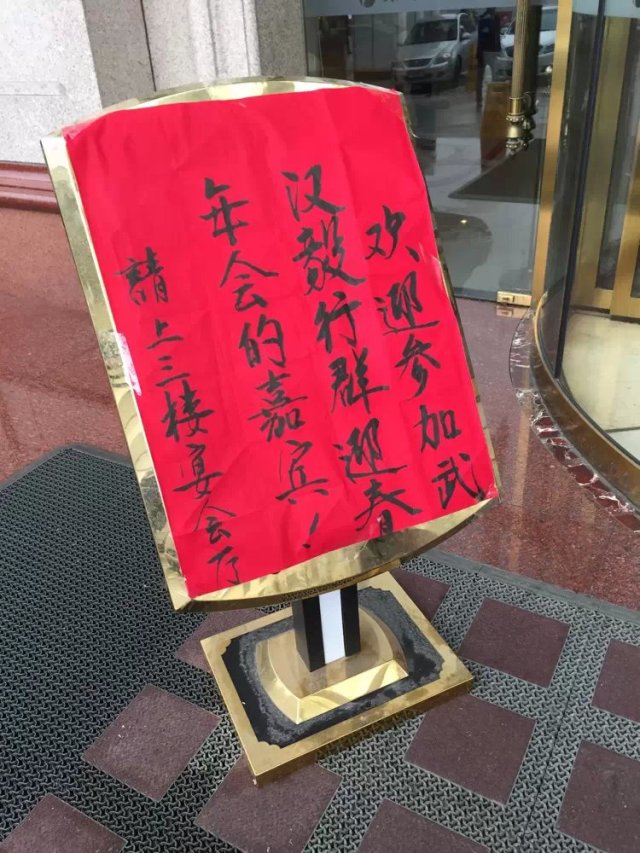 欢迎参加武
汉毅行群迎春
年会的嘉宾！
請上三楼宴会厅